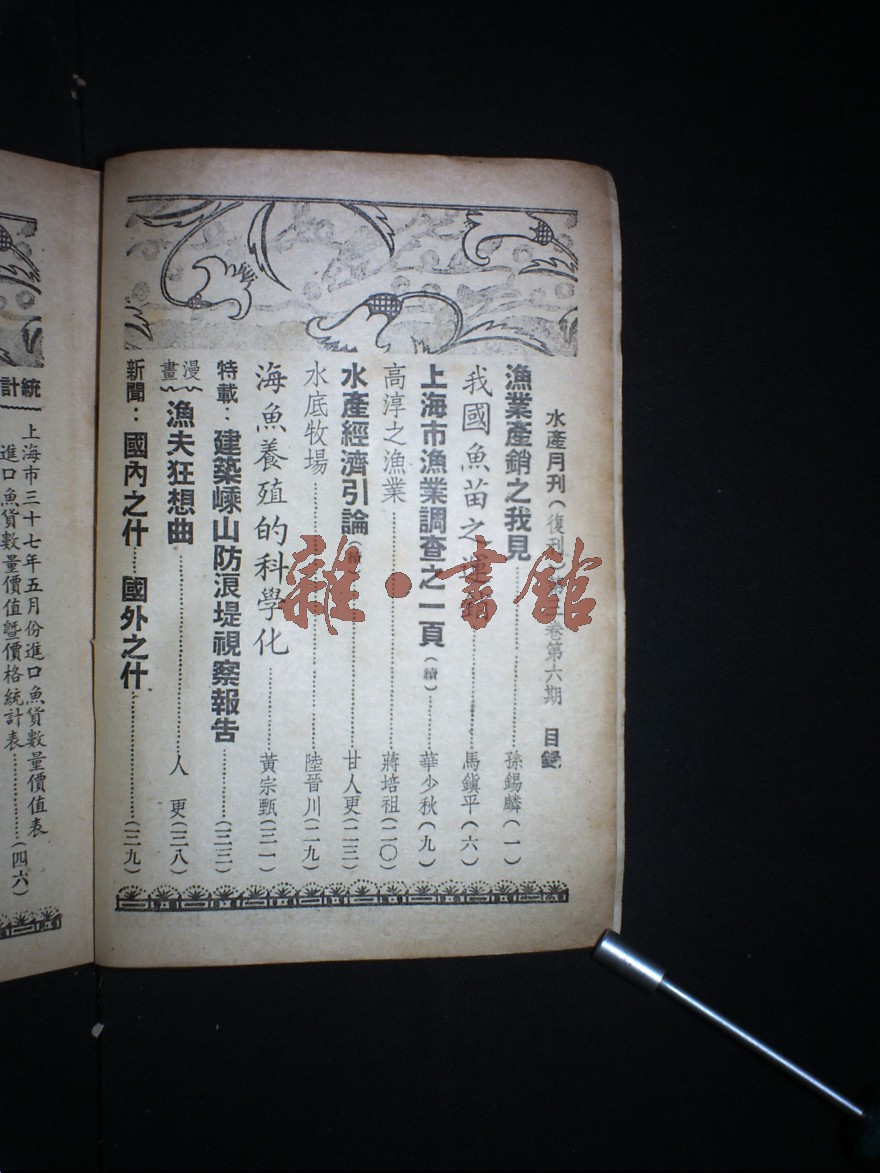 水產月刊(復刊)第三卷第六期 目錄
漁業產銷之我見 孫錫麟(一)
我國魚苗之運銷 馬鎭平(六)
上海市漁業調查之一頁(續) 華少秋(九)
高淳之漁業 蔣培祖(二〇)
水產經濟引論(續) 甘人更(二三)
水底牧場 陸晉川(二九)
海魚養殖的科學化 黃宗甄(三一)
特載:建築嵊山防浪堤視察報告 (三三)
漫畫 漁夫狂想曲 人更(三八)
新聞:國內之什 國外之什 (三九)
統計 上海市三十七年五月份進口魚貨數量價值表
進口魚貨數量價值曁價格統計表 (四六)
雜·書館